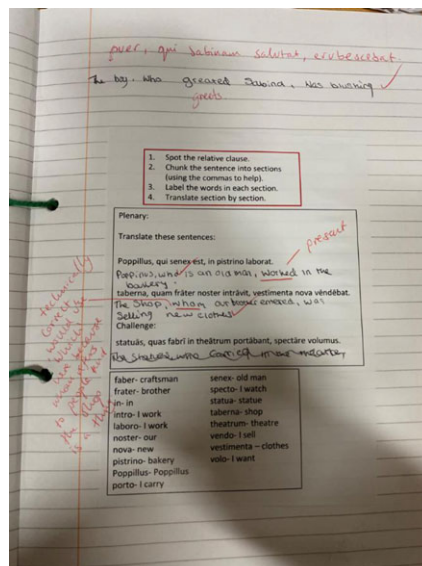 puer, qui Sabinam salutat, erubescebat.
The boy, who greated Sabina, was blushing
greets.
1. Spot the relative clause.
2. Chunk the sentence into sections
(using the commas to help).
3. Label the words in each section.
4. Translate section by section.
Plenary:
Translate these sentences:
present
Poppillus, qui senex est, in pistrino laborat.
who is an old man, worked in the
bakery.
taberna, quam fráter noster intrávit, vestimenta nova véndébat.
The Shop, whom our brother entered, was
Selling new clothes
Challenge:
statuás, quas fabrí in theátrum portábant, spectáre volumus.
The statues, who carried
technically
correct
would use
'which'
here because
'whom' refers
to people and
the shop
is a thing
faber- craftsman
frater- brother
in- in
intro- I work
laboro- I work
noster- our
nova- new
pistrino- bakery
Poppillus- Poppillus
porto- I carry
senex- old man
specto- I watch
statua- statue
taberna- shop
theatrum- theatre
vendo- I sell
vestimenta – clothes
volo- I want